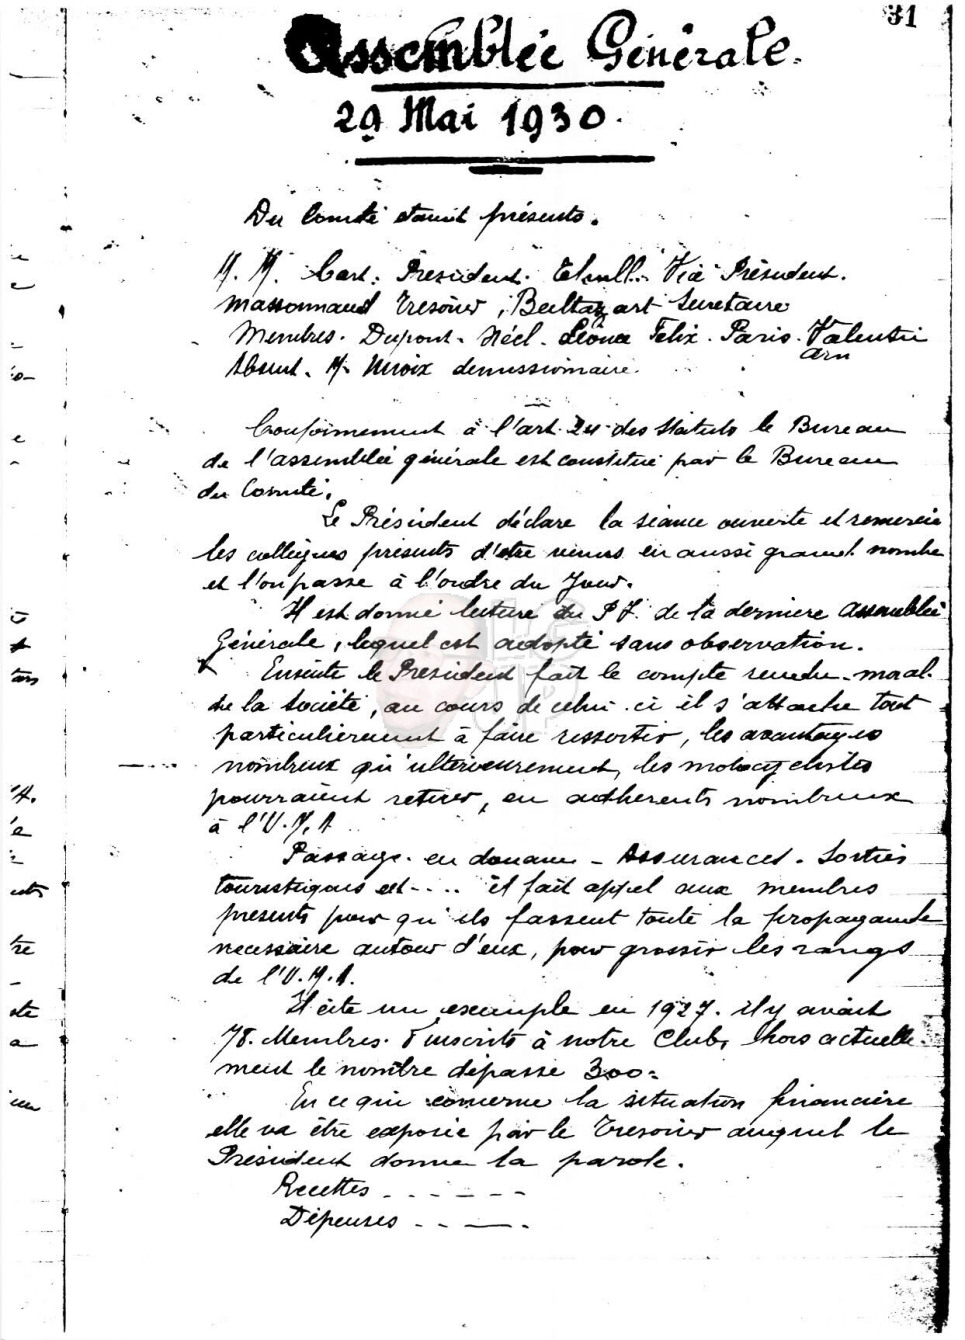 31
Assemblée Générale.
29 Mai 1930.
Du Comité étaient présents.
M. M. Cart. President. Vice Président.
Massonnaud Tresorier, Baltazart Secretaire
Membres. Dupont. Néel. Léonce Felix. Paris. Valentin
Absent. M. démissionnaire.
Conformement à l'art. 24 des Statuts le Bureau
de l'assemblée générale est constitué par le Bureau
du Comité.
Le Président déclare la séance ouverte et remercie
les collègues présents d'être venus en aussi grand nombre
et l'on passe à l'ordre du Jour.
Il est donné lecture du P.V. de la dernière assemblée
Générale, lequel est adopté sans observation.
Ensuite le President fait le compte rendu moral
de la Société, au cours de celui ci il s'attache tout
particulièrement à faire ressortir, les avantages
nombreux qu'ulterieurement, les motocyclistes
pourraient retirer, en adherents nombreux
à l'U.M.A
Passage en douane - Assurances. Sorties
touristiques ect.... il fait appel aux membres
presents pour qu'ils fassent toute la propagande
necessaire autour d'eux, pour grossir les rangs
de l'U.M.A.
Il cite un exemple en 1927. il y avait
78. Membres. inscrits à notre Club, hors actuelle-
ment le nombre dépasse 300.
En ce qui concerne la situation financière
elle va être exposée par le Tresorier auquel le
Président donne la parole.
Recettes . . . . . .
Dépenses . . . . .